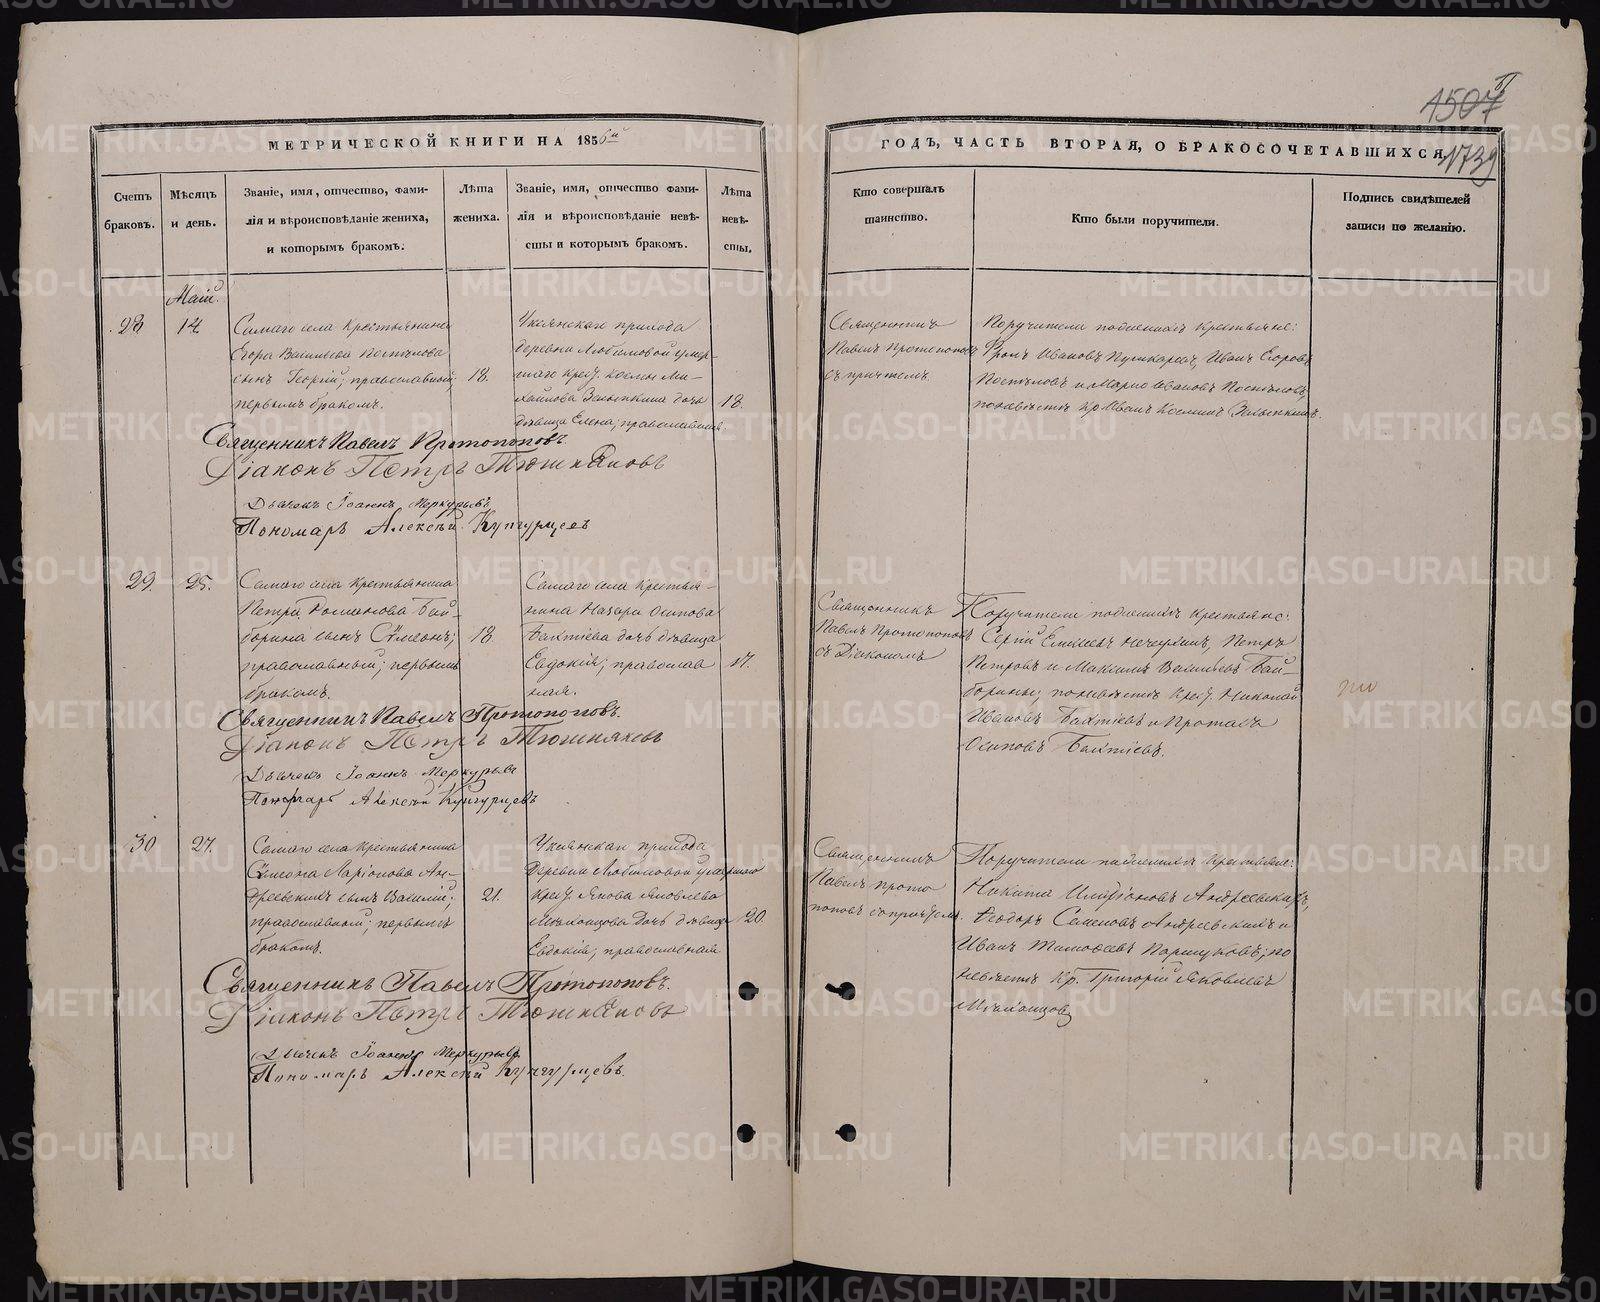 1507
1739
МЕТРИЧЕСКОЙ КНИГИ НА 1856й
ГОДЪ, ЧАСТЬ ВТОРАЯ, О БРАКОСОЧЕТАВШИХСЯ
Счетъ браковъ.
Мѣсяцъ и день.
Званіе, имя, отчество, фами-
лія и вѣроисповѣданіе жениха,
и которымъ бракомъ.
Лѣта жениха.
Званіе, имя, отчество фами-
лія и вѣроисповѣданіе невѣ-
сты и которымъ бракомъ.
Лѣта невѣ-
сты.
Кто совершалъ
таинство.
Кто были поручители.
Подпись свидѣтелей
записи по желанію.
Маій.
28
14.
Самаго села крестьянина
Егора Васильева
сынъ Георгій; православный;
первымъ бракомъ.
18.
прихода
деревни Любимовой умер-
шаго крест. Космы Ми-
хайлова дочь
дѣвица Елена; православная
18.
Священникъ
Павелъ Протопоповъ
съ причтомъ.
Поручители по женихѣ крестьяне:
Фролъ Ивановъ Пушкаревъ, Иванъ Егоровъ
по невѣстѣ кр. Иванъ Косминъ
Священникъ Павелъ Протопоповъ.
Діаконъ Петръ Тюшняковъ
Дьячекъ Іоаннъ Меркурьевъ
Пономарь Алексѣй Кунгурцевъ
29.
25.
Самаго села крестьянина
Петра Бай-
борина сынъ Сѵмеонъ;
православный; первымъ
бракомъ.
18.
Самаго села крестья-
нина Назара Осипова
Бахтіева дочь дѣвица
Евдокія; православ
ная.
17.
Священникъ
Павелъ Протопоповъ
съ Діакономъ
Поручители по женихѣ крестьяне:
Сергій Петръ
Петровъ и Максимъ Васильевъ Бай-
борины; по невѣстѣ крест. Николай
Ивановъ Бахтіевъ и
Осиповъ Бахтіевъ.
Священникъ Павелъ Протопоповъ.
Діаконъ Петръ Тюшняковъ
Дьячекъ Іоаннъ Меркурьевъ
Пономарь Алексѣй Кунгурцевъ
30
27.
Самаго села крестьянина
Сѵмеона Ларіонова Ан-
дреевскихъ сынъ Василій;
православный; первымъ
бракомъ.
21.
прихода
деревни Любимовой умершаго
крест. Якова Яковлева
дочь дѣвица
Евдокія; православная
20.
Священникъ
Павелъ Прото
поповъ съ причтомъ.
Поручители по женихѣ крестьяне:
Никита Андреевскихъ,
Ѳеодоръ Семеновъ Андреевскихъ и
Иванъ Тимофеевъ Паршуковъ; по
невѣстѣ кр. Григорій Яковлевъ
Священникъ Павелъ Протопоповъ.
Діаконъ Петръ Тюшняковъ
Дьячекъ Іоаннъ Меркурьевъ
Пономарь Алексѣй Кунгурцевъ.
METRIKI.GASO-URAL.RU